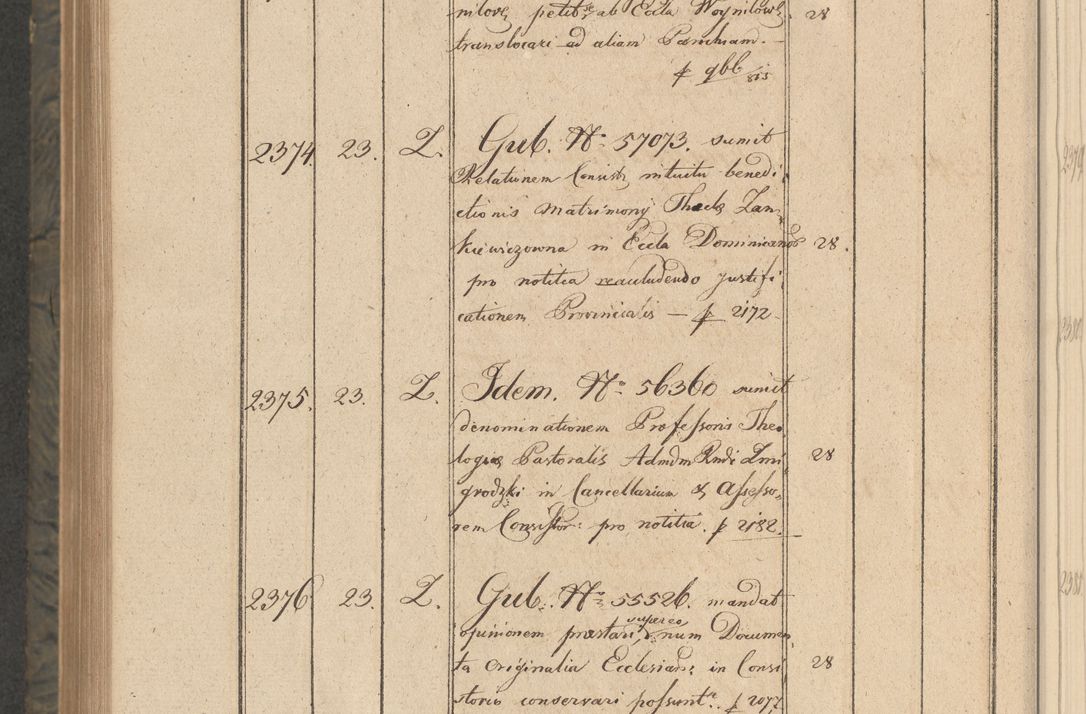 nilovę petit: ab Eccla Woynilowę 28
translocari ad aliam Parochiam. —
p 966/815
2374. 23. Z. Gub. No 57073. sumit
Relationem Consist: intuitu benedi,
ctionis Matrimonÿ Theclę Zan,
kiewiczowna in Eccla Dominicanor 28.
pro notitia reaccludendo justifi,
cationem Provincialis — p 2172.
2375. 23. Z. Idem. No 56360 sumit
denominationem Professoris Theo,
logiæ Pastoralis Admdm Rndi Zmi, 28
grodzki in Cancellarium & Assesso,,
rem Consistor: pro notitia. p 2182.
2376 23. Z. Gub. No 55526. mandat
opinionem præstari, supereo num Documen
ta originalia Ecclesiar: in Consi, 28
storio conservari possunt. p 2077